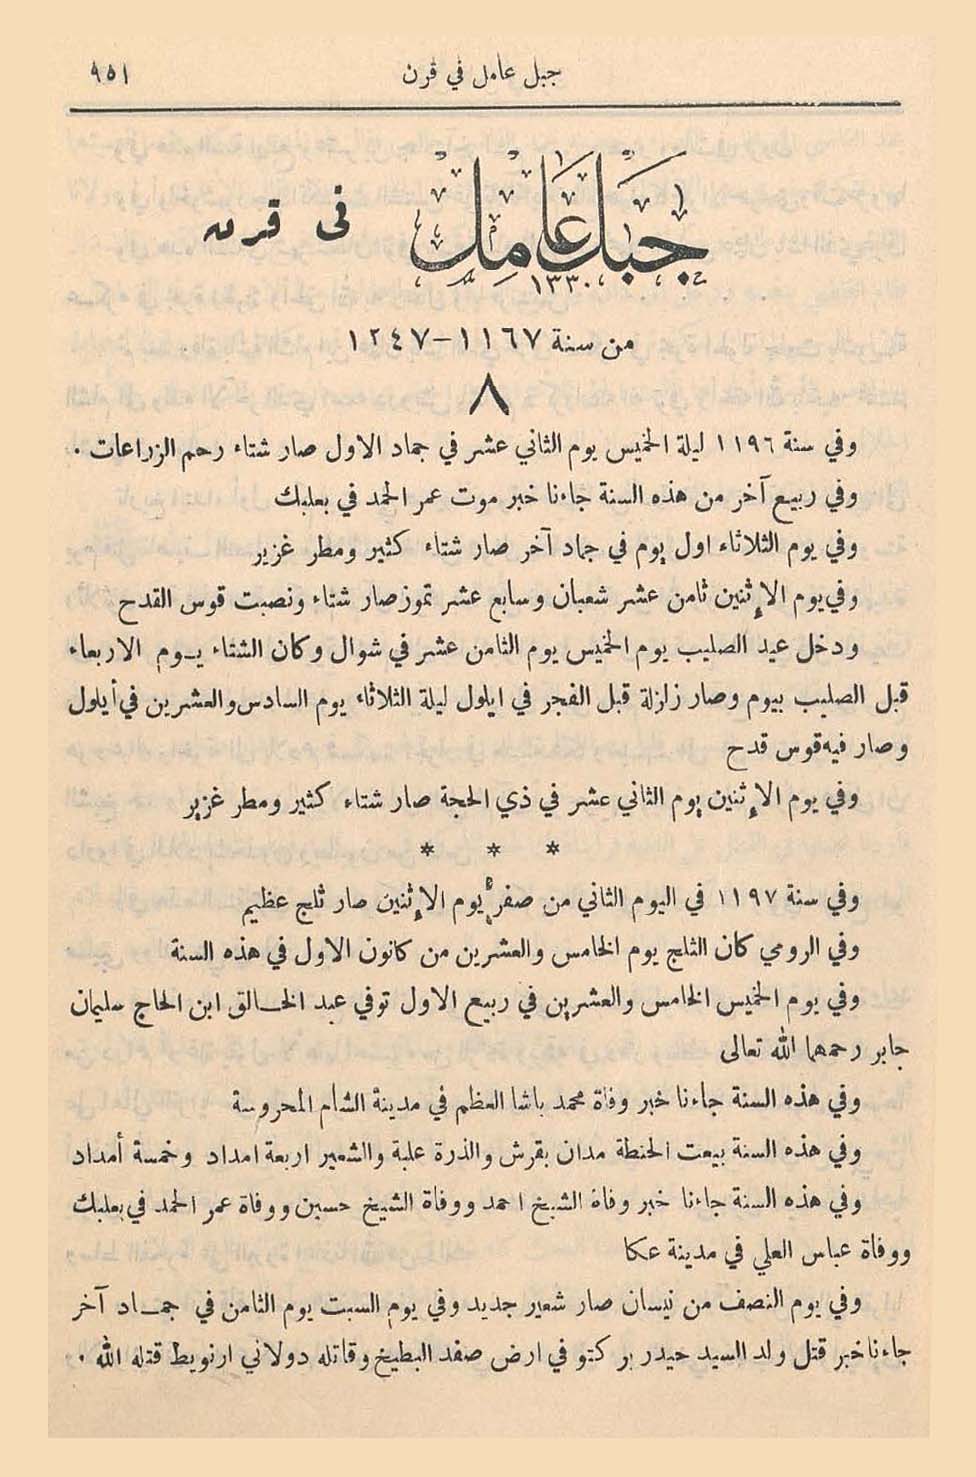 جبل عامل في قرن ٩٥١
جبل عامل فى قرن
١٣٣٠
من سنة ١١٦٧–١٢٤٧
٨
وفي سنة ١١٩٦ ليلة الخميس يوم الثاني عشر في جماد الاول صار شتاء رحم الزراعات ٠
وفي ربيع آخر من هذه السنة جاءنا خبر موت عمر الحمد في بعلبك
وفي يوم الثلاثاء اول يوم في جماد آخر صار شتاء كثير ومطر غزير
وفي يوم الإثنين ثامن عشر شعبان وسابع عشر تموز صار شتاء ونصبت قوس القدح
ودخل عيد الصليب يوم الخميس يوم الثامن عشر في شوال وكان الشتاء يـوم الاربعاء
قبل الصليب بيوم وصار زلزلة قبل الفجر في ايلول ليلة الثلاثاء يوم السادس والعشرين في أيلول
وصار فيه قوس قدح
وفي يوم الإثنين يوم الثاني عشر في ذي الحجة صار شتاء كثير ومطر غزير
* * *
وفي سنة ١١٩٧ في اليوم الثاني من صفر يوم الإثنين صار ثلج عظيم
وفي الرومي كان الثلج يوم الخامس والعشرين من كانون الاول في هذه السنة
وفي يوم الخميس الخامس والعشرين في ربيع الاول توفي عبد الخـالق ابن الحاج سليمان
جابر رحمهما الله تعالى
وفي هذه السنة جاءنا خبر وفاة محمد باشا العظم في مدينة الشام المحروسة
وفي هذه السنة بيعت الحنطة مدان بقرش والذرة علبة والشعير اربعة امداد وخمسة أمداد
وفي هذه السنة جاءنا خبر وفاة الشيخ احمد ووفاة الشيخ حسين ووفاة عمر الحمد في بعلبك
ووفاة عباس العلي في مدينة عكا
وفي يوم النصف من نيسان صار شعير جديد وفي يوم السبت يوم الثامن في جمـاد آخر
جاءنا خبر قتل ولد السيد حيدر بر كتو في ارض صفد البطيخ وقاتله دولاتي ارنويط قتله الله ٠